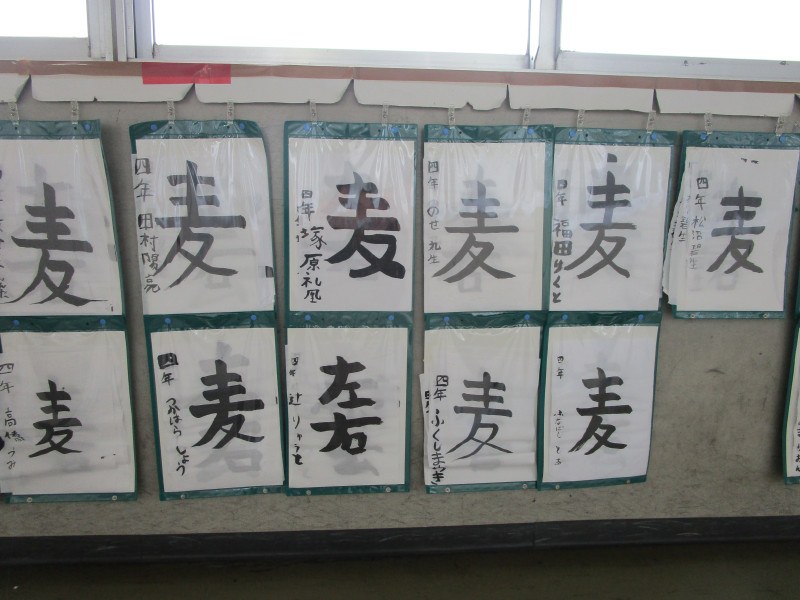 麦
麦
四年 田村陽亮
麦
四年 塚原礼凰
麦
四年 のせ
麦
四年 福田りくと
麦
四年 松沼
麦
四年 高橋
麦
四年 つはらしょう
左右
四年 辻りゅうと
麦
四年 ふくしま
麦
四年